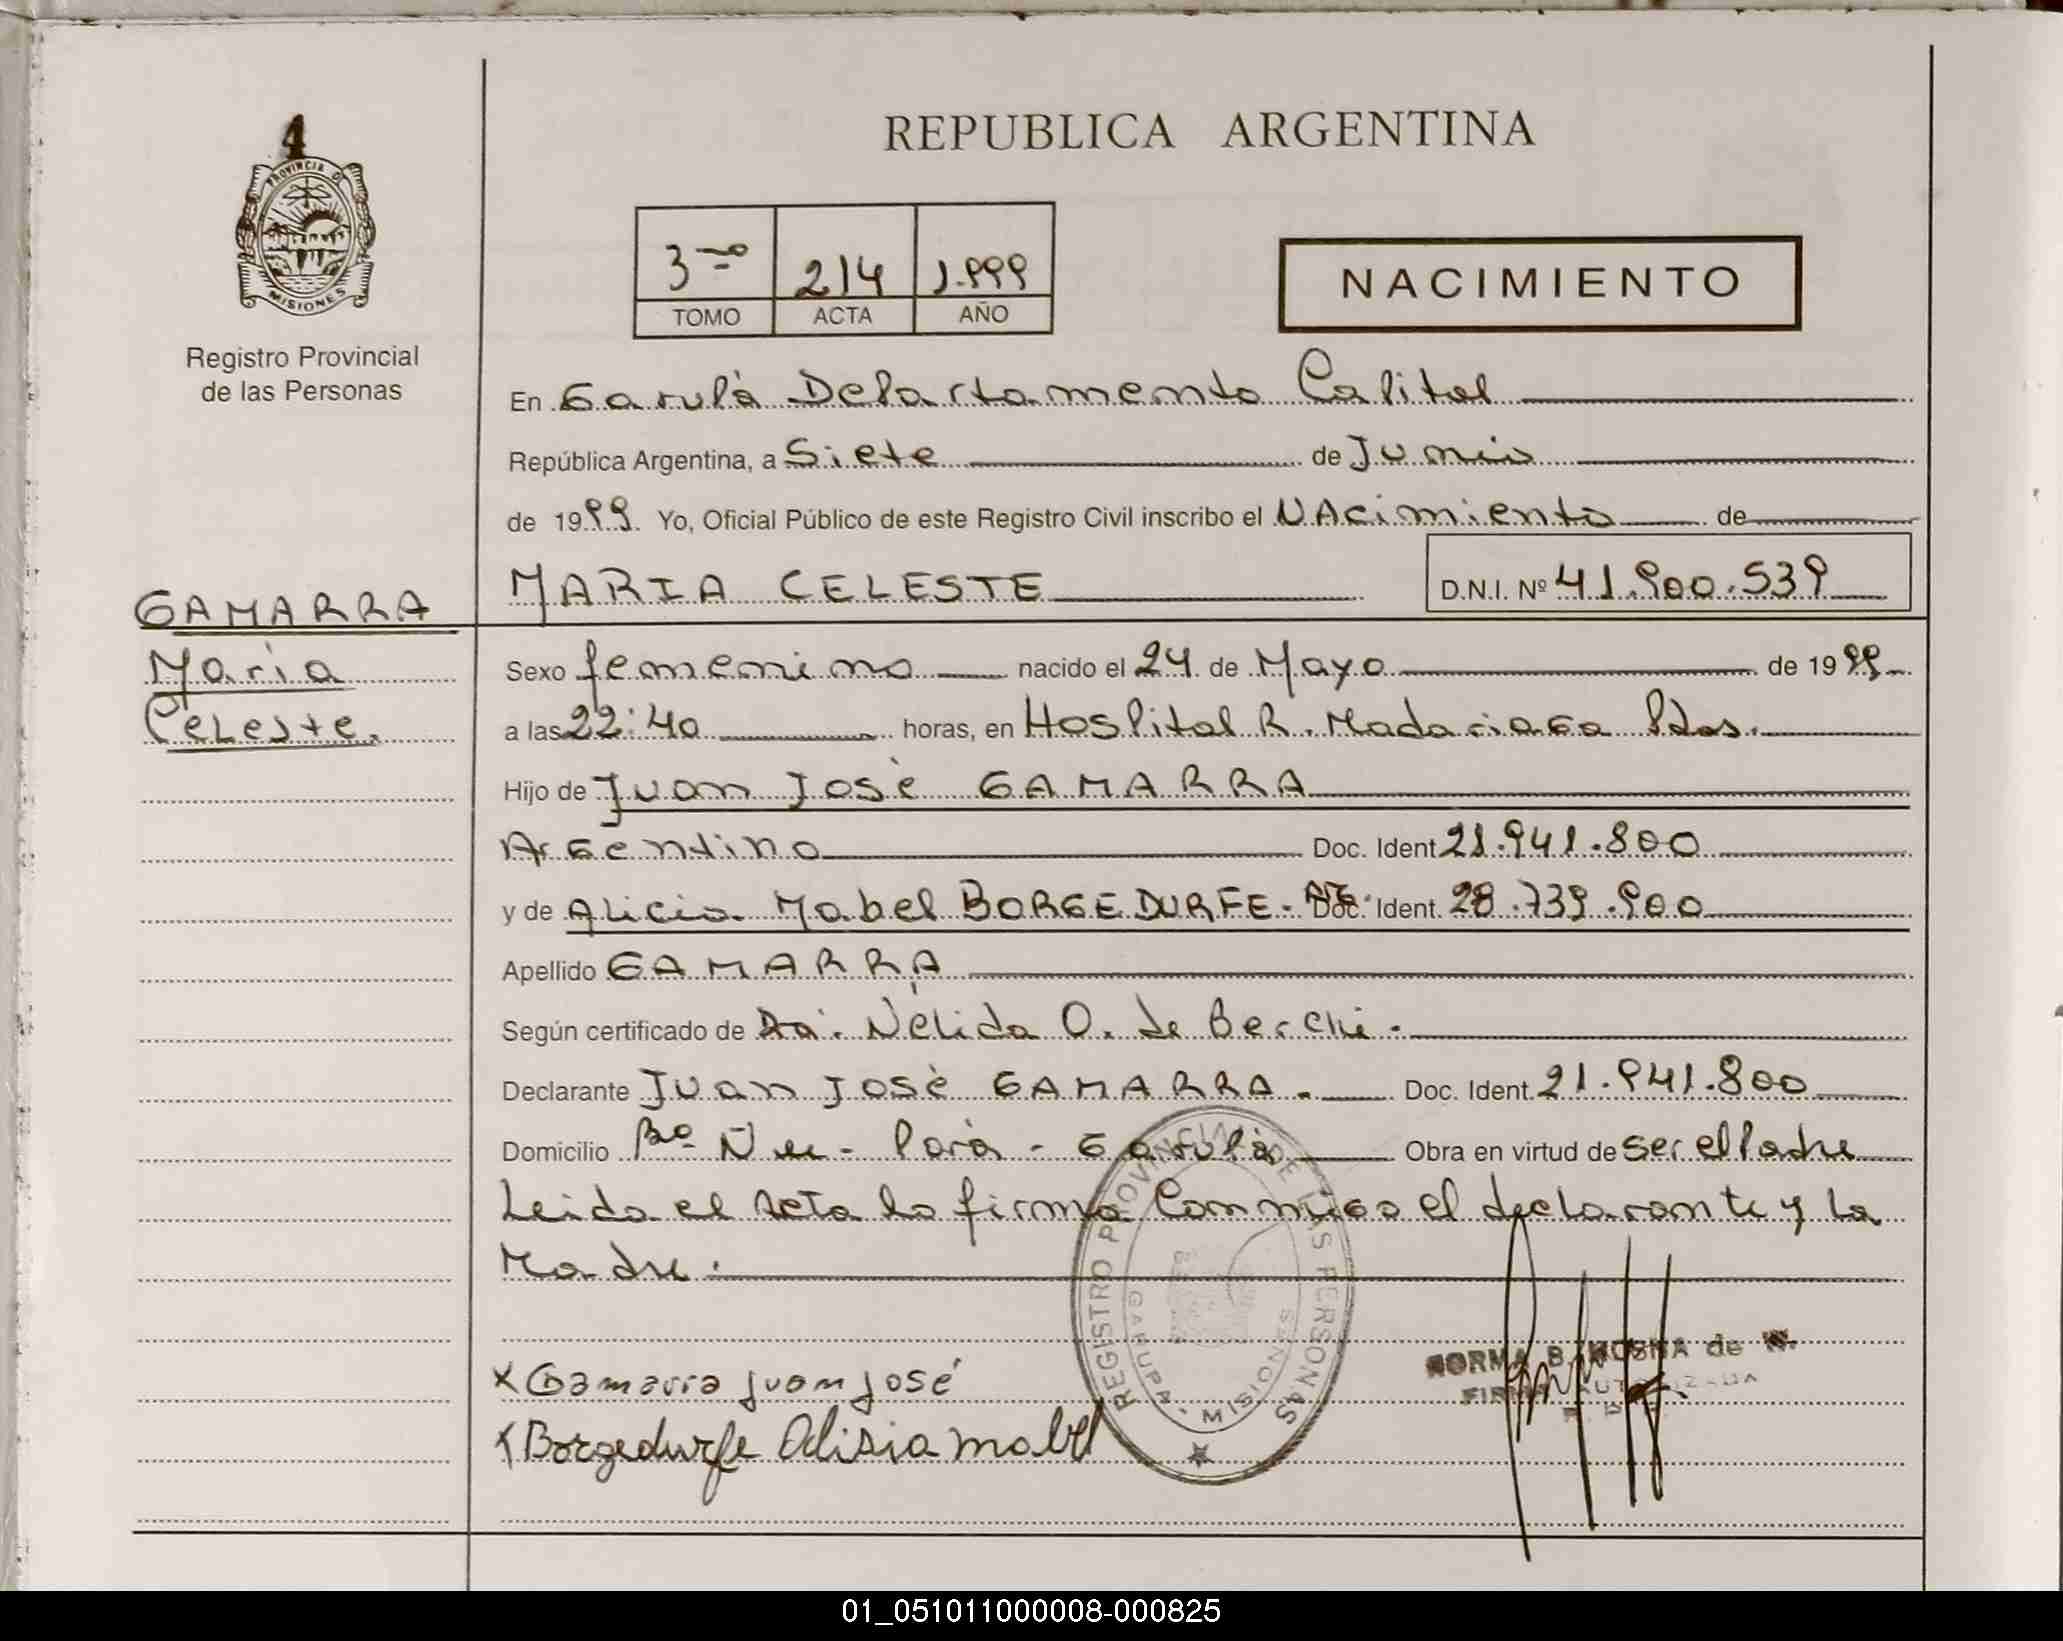 4
PROVINCIA D
MISIONES
Registro Provincial
de las Personas
REPUBLICA ARGENTINA
3ro 214 1.999
TOMO ACTA AÑO
NACIMIENTO
En Garupà Departamento Capital
República Argentina, a Siete de Junio
de 1999. Yo, Oficial Público de este Registro Civil inscribo el NAcimiento de
MARIA CELESTE D.N.I. Nº 41.900.539
GAMARRA
Maria
Celeste.
Sexo femenino nacido el 24 de Mayo de 1999
a las 22:40 horas, en Hospital R. Madariaga Pdas.
Hijo de Juan Josè GAMARRA
Argentino Doc. Ident 21.941.800
y de Alicia Mabel BORGEDURFE - Doc. Ident. 28.739.900
Apellido GAMARRA
Según certificado de Da. Nèlida O. de Berchi.
Declarante Juan Josè GAMARRA. Doc. Ident. 21.941.800
Domicilio Bº Ñu - Porà - Garupà Obra en virtud de ser el Padre
Leida el acta la firma Conmigo el declarante y la
Madre.
REGISTRO PROVINCIAL DE LAS PERSONAS
GARUPA - MISIONES
NORMA B. de N.
FIRMA AUTORIZADA
x Gamarra juan josé
x Borgedurfe Alisia mabel
01_051011000008-000825